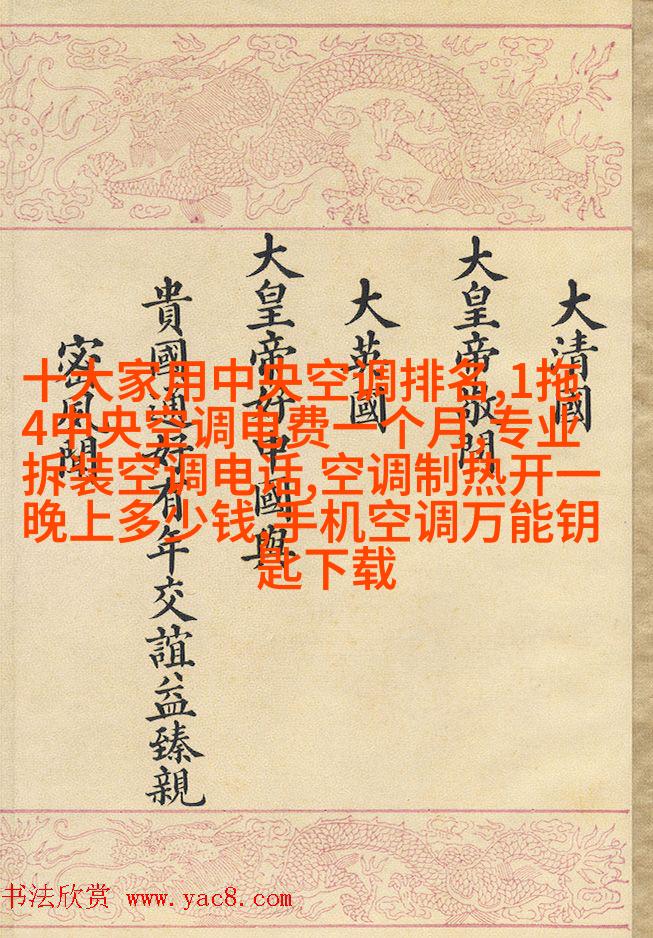 大清國
大皇帝敬問
大英國
大皇帝好中國與
貴國通好有年交誼益臻親
密風聞
十大家用中央空调排名,1拖
4中央空调电费一个月,专业
拆装空调电话,空调制热开一
晚上多少钱,手机空调万能钥
匙下载
书法欣赏 www.yac8.com